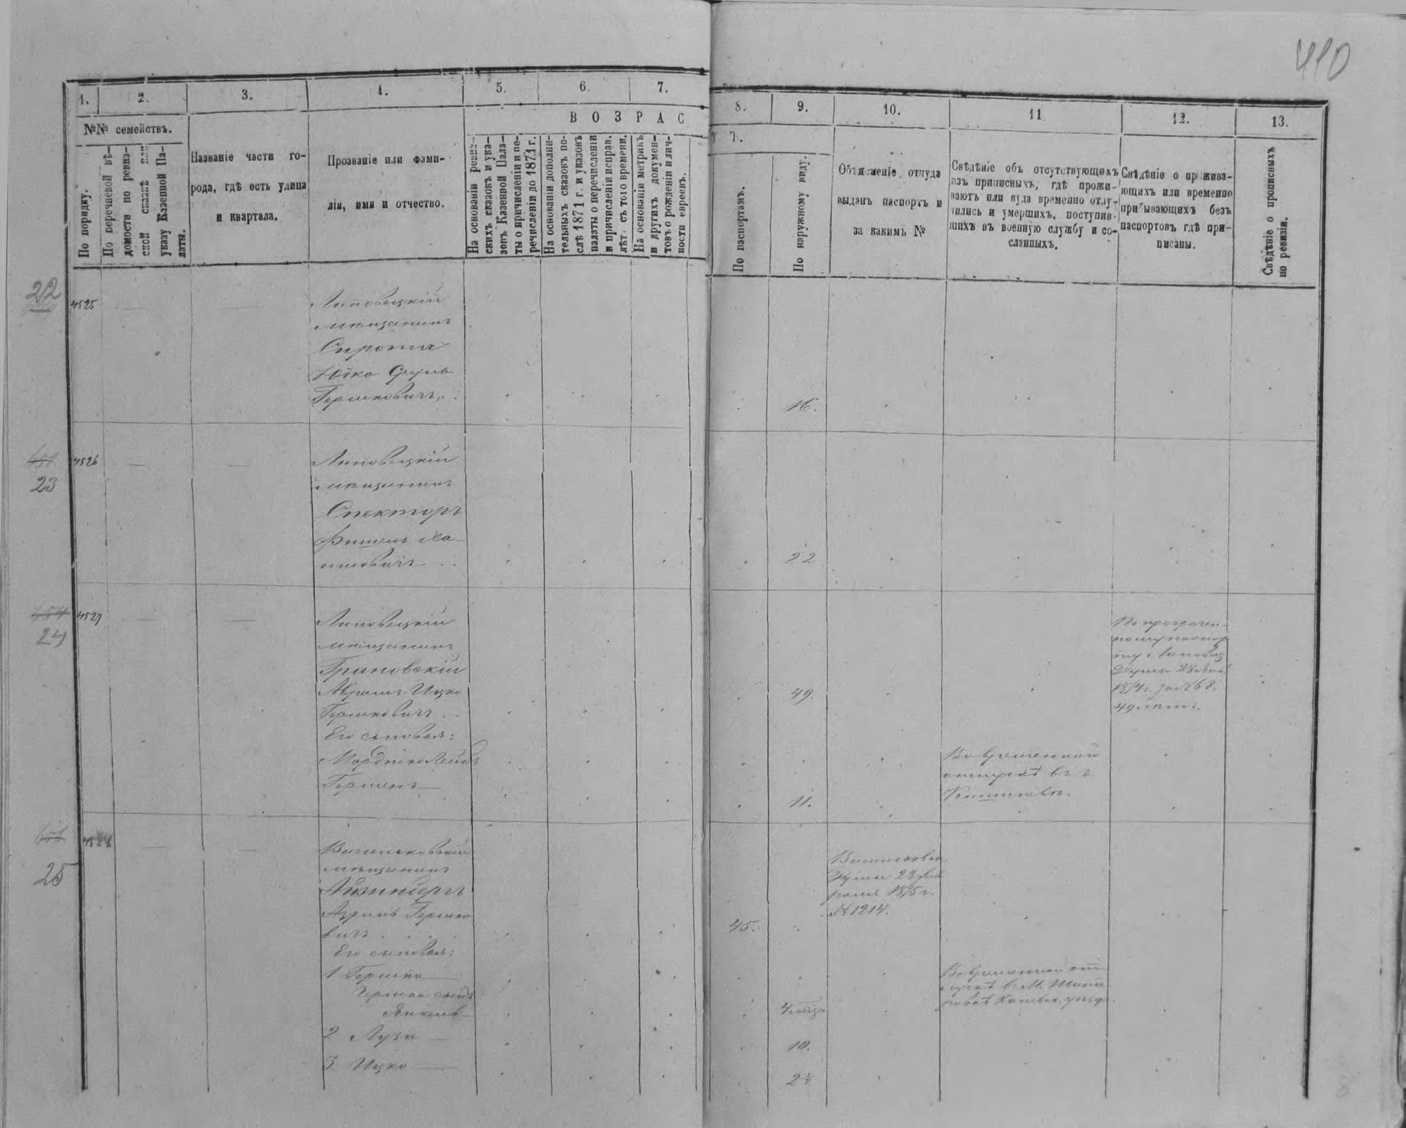 410
1. 2. 3. 4. 5. 6. 7. 8. 9. 10. 11 12. 13.
ВОЗРАС
Т Ъ.
№№ семействъ.
По порядку.
По перечневой вѣ-
домости по ревиз-
ской сказкѣ или
указу Казенной Па-
латы.
Названіе части го-
рода, гдѣ есть улица
и квартала.
Прозваніе или фами-
лія, имя и отчество.
На основаніи ревиз-
скихъ сказокъ и ука-
зовъ Казенной Пала-
ты о причисленіи и пе-
речисленіи до 1871 г.
На основаніи дополни-
тельныхъ сказокъ по-
слѣ 1871 г. и указовъ
палаты о перечисленіи
и причисленіи исправ.
лѣт. съ того времени.
На основаніи метрикъ
и другихъ докумен-
товъ о рожденіи и лич-
ности евреевъ.
По паспортамъ.
По наружному виду.
Объясненіе откуда
выданъ паспортъ и
за какимъ №
Свѣдѣніе объ отсутствующихъ
изъ приписныхъ, гдѣ прожи-
ваютъ или куда временно отлу-
чились и умершихъ, поступив-
шихъ въ военную службу и со-
сланныхъ.
Свѣдѣніе о прожива-
ющихъ или временно
прибывающихъ безъ
паспортовъ гдѣ при-
писаны.
Свѣдѣніе о прописныхъ
по ревизіи.
22
4525
Липовецкій
мѣщанинъ
Сирота
Гершковичъ
16.
23
4526
Липовецкій
мѣщанинъ
Спекторъ
Фишель Ха-
имовичъ
22
24
4527
Липовецкій
мѣщанинъ
Грановскій
Абрамъ Ицко
Гершковичъ
Его сыновья:
Мордко Лейбъ
Гершонъ
49.
11.
Во временной
отлучкѣ въ г.
Кишиневѣ.
По просрочен-
ному паспор-
ту Липовец.
Думы
1874 г. за № 68.
49 лѣтъ.
25
4528
Васильковскій
мѣщанинъ
Айзинбергъ
Азриль Гершко
вичъ
Его сыновья:
1 Гершко
Гершко сынъ
Янкель
2 Лузи
3. Ицко
45.
10.
2½
Васильковск.
Думы 23 фев
раля 1875 г.
№ 1214.
Во временной от
лучкѣ въ М.